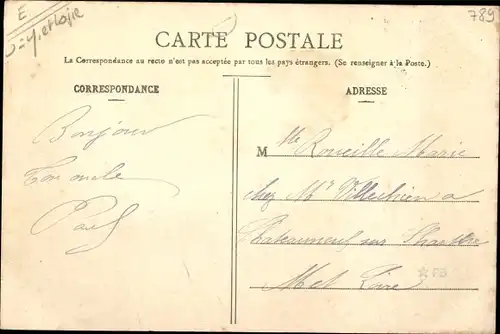 E
M et Loire
789
CARTE POSTALE
La Correspondance au recto n'est pas acceptée par tous les pays étrangers. (Se renseigner à la Poste.)
CORRESPONDANCE
ADRESSE
Bonjour
Ton oncle
Paul
Mlle Roueille Marie
chez Mr Villechien a
Chateauneuf sur Sharthe
Met Loire
FB